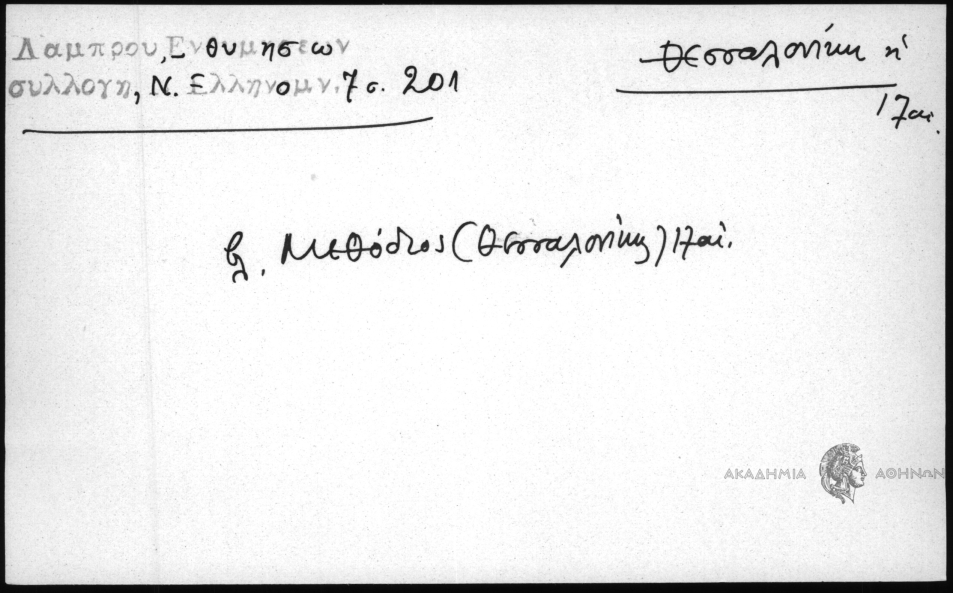 Λαμπρου, Ενθυμησεων
συλλογη, Ν. Ελληνομν. 7 σ. 201
Θεσσαλονίκη ἡ
17αι.
βλ. Μεθόδιος (Θεσσαλονίκης) 17αι.
ΑΚΑΔΗΜΙΑ ΑΘΗΝΩΝ